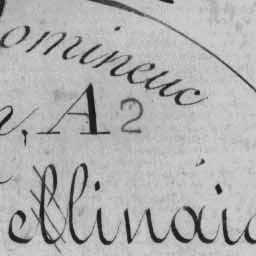 omineuc
n, A 2
ellinaic